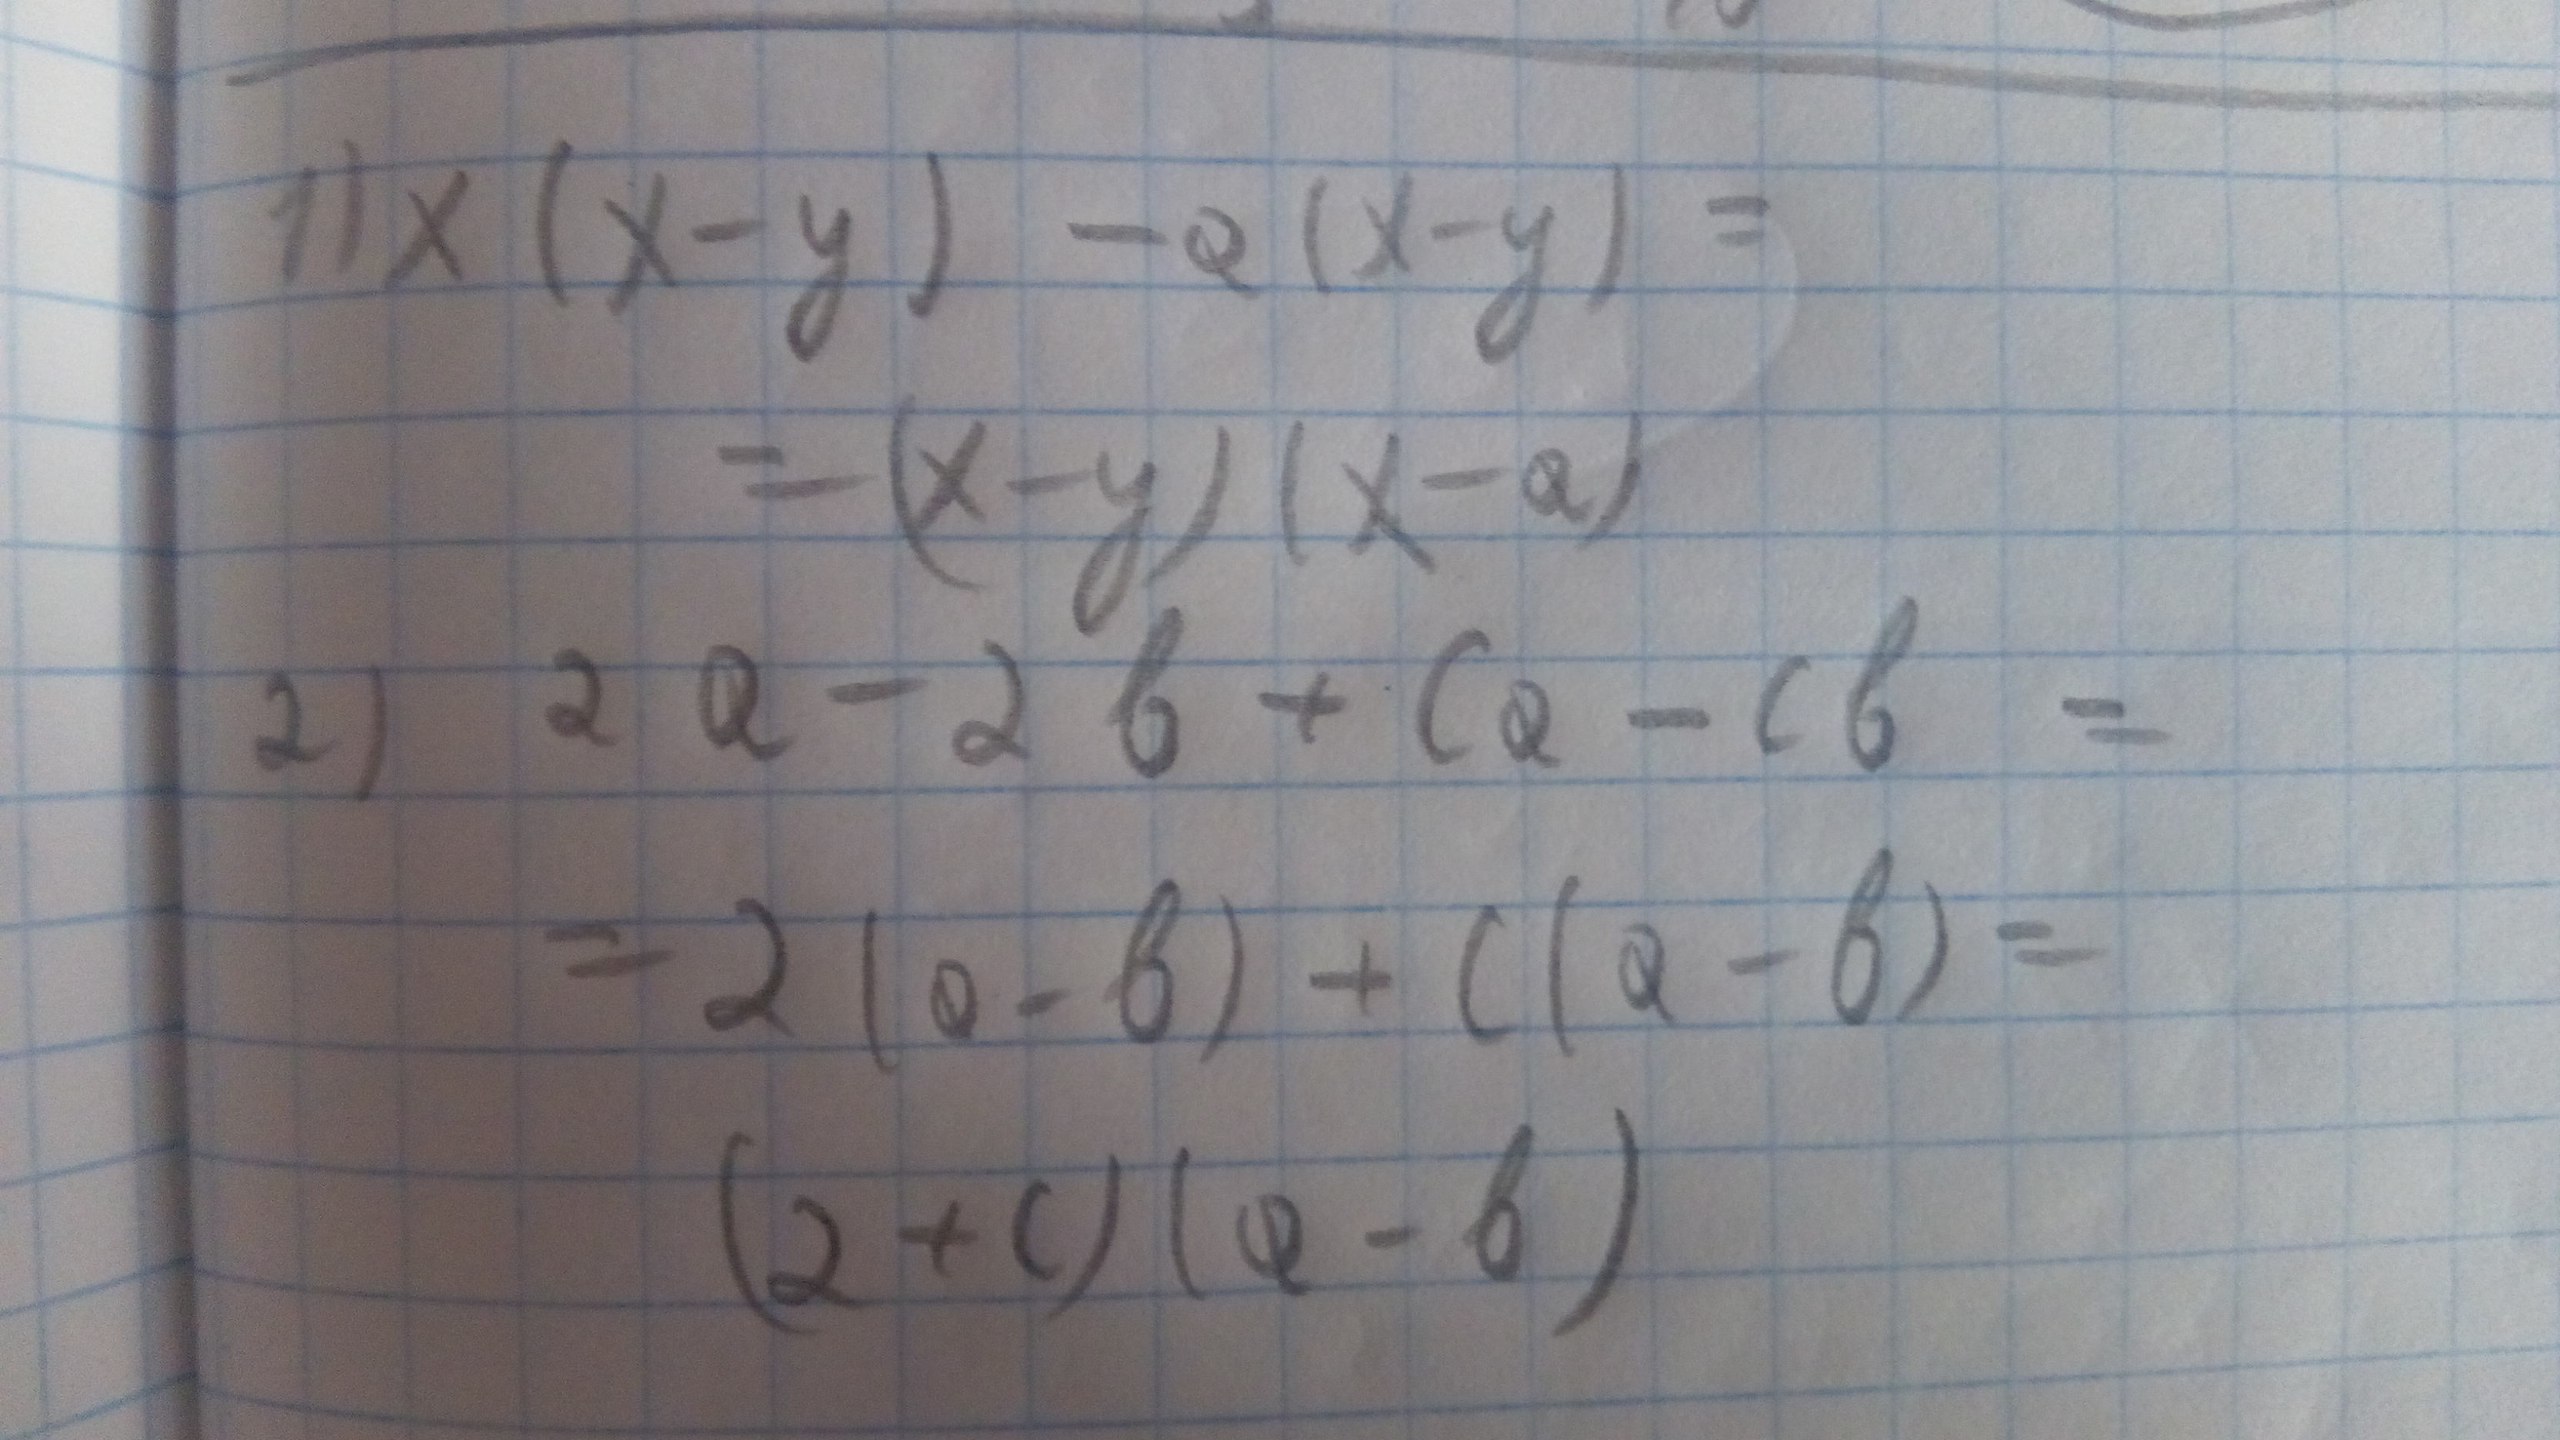 1) x (x - y) - a (x - y) =
= (x - y) (x - a)
2) 2a - 2b + ca - cb =
= 2 (a - b) + c (a - b) =
(2 + c) (a - b)